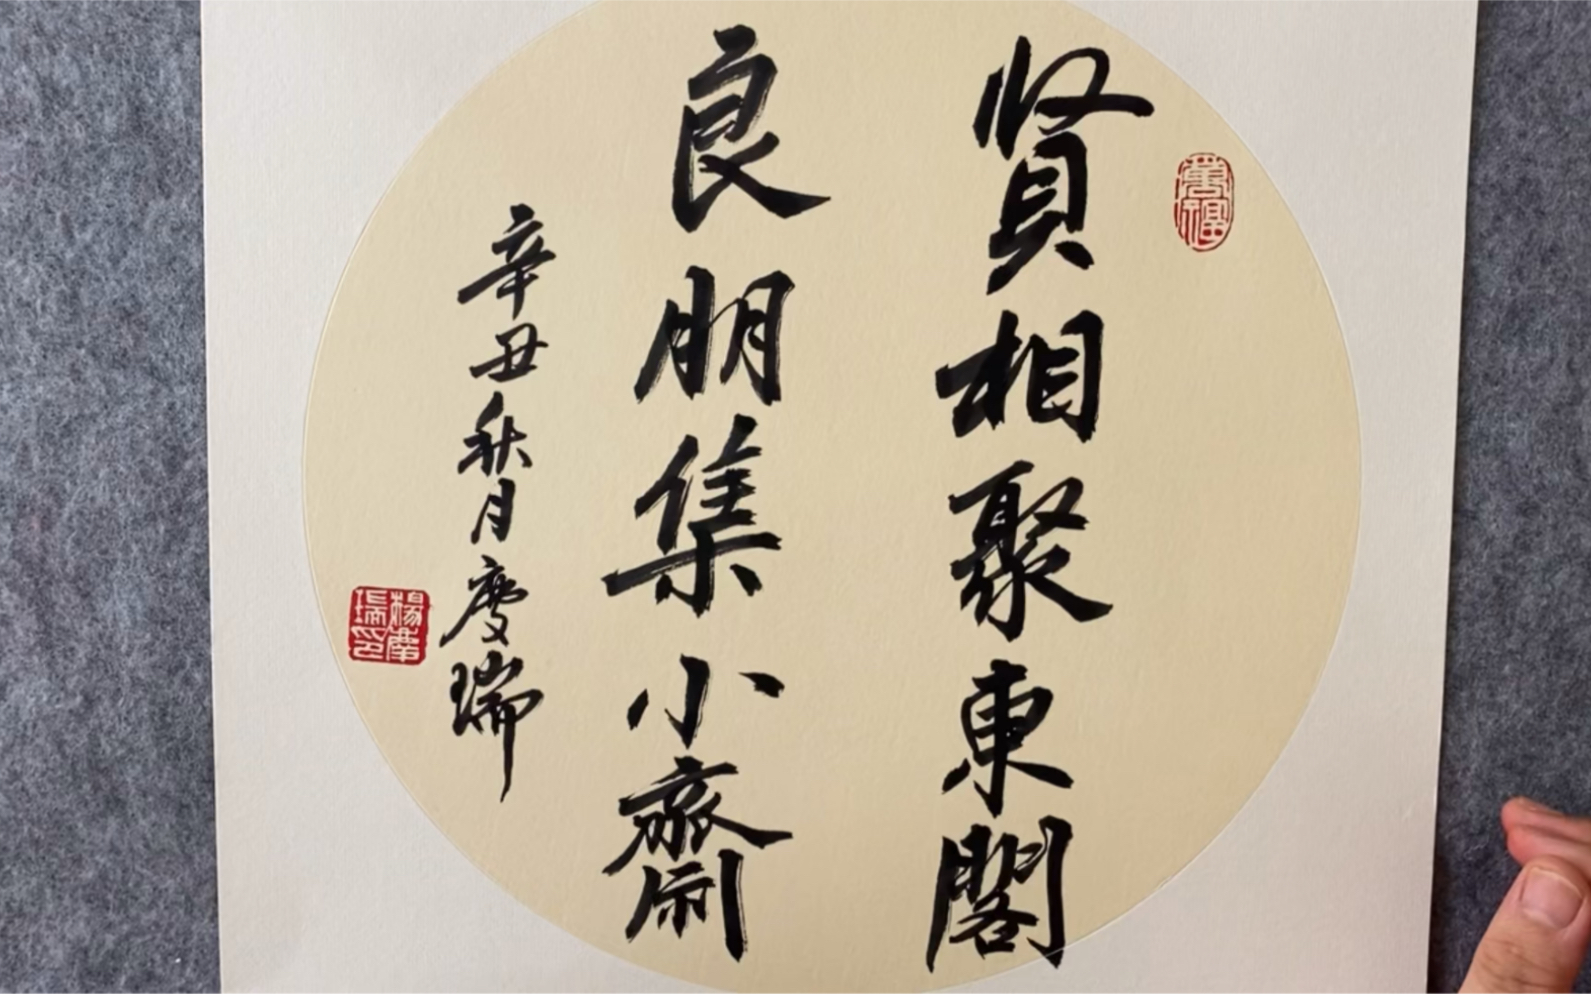 賢相聚東閣
良朋集小齋
辛丑秋月慶瑞
萬福
楊慶瑞印